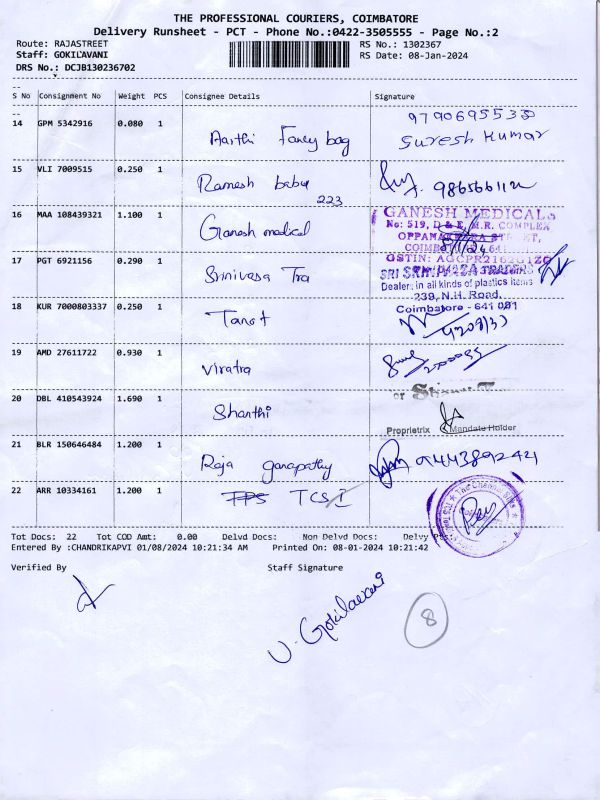 THE PROFESSIONAL COURIERS, COIMBATORE
Delivery Runsheet - PCT - Phone No.:0422-3505555 - Page No.:2
Route: RAJASTREET
Staff: GOKILAVANI
DRS No.: DCJB130236702
RS No.: 1302367
RS Date: 08-Jan-2024
S No Consignment No Weight PCS Consignee Details Signature
14 GPM 5342916 0.080 1 Aarthi Fancy bag 9790695535 Suresh Kumar
15 VLI 7009515 0.250 1 Ramesh babu 223
16 MAA 108439321 1.100 1 Ganesh medical
GANESH MEDICALS
No: 519, D & E, H.R. COMPLEX
17 PGT 6921156 0.290 1 Srinivasa Tra
GSTIN:
Dealer, in all kinds of plastics items
239, N.H. Road,
Coimbatore - 641 001
18 KUR 7000803337 0.250 1
19 AMD 27611722 0.930 1 Viratra
20 DBL 410543924 1.690 1 Shanthi
Proprietrix / Mandate Holder
21 BLR 150646484 1.200 1 Raja ganapathy 9443892421
22 ARR 10334161 1.200 1 TCS
Tot Docs: 22 Tot COD Amt: 0.00 Delvd Docs: Non Delvd Docs:
Entered By :CHANDRIKAPVI 01/08/2024 10:21:34 AM Printed On: 08-01-2024 10:21:42
Verified By Staff Signature
V. Gokilavani
8